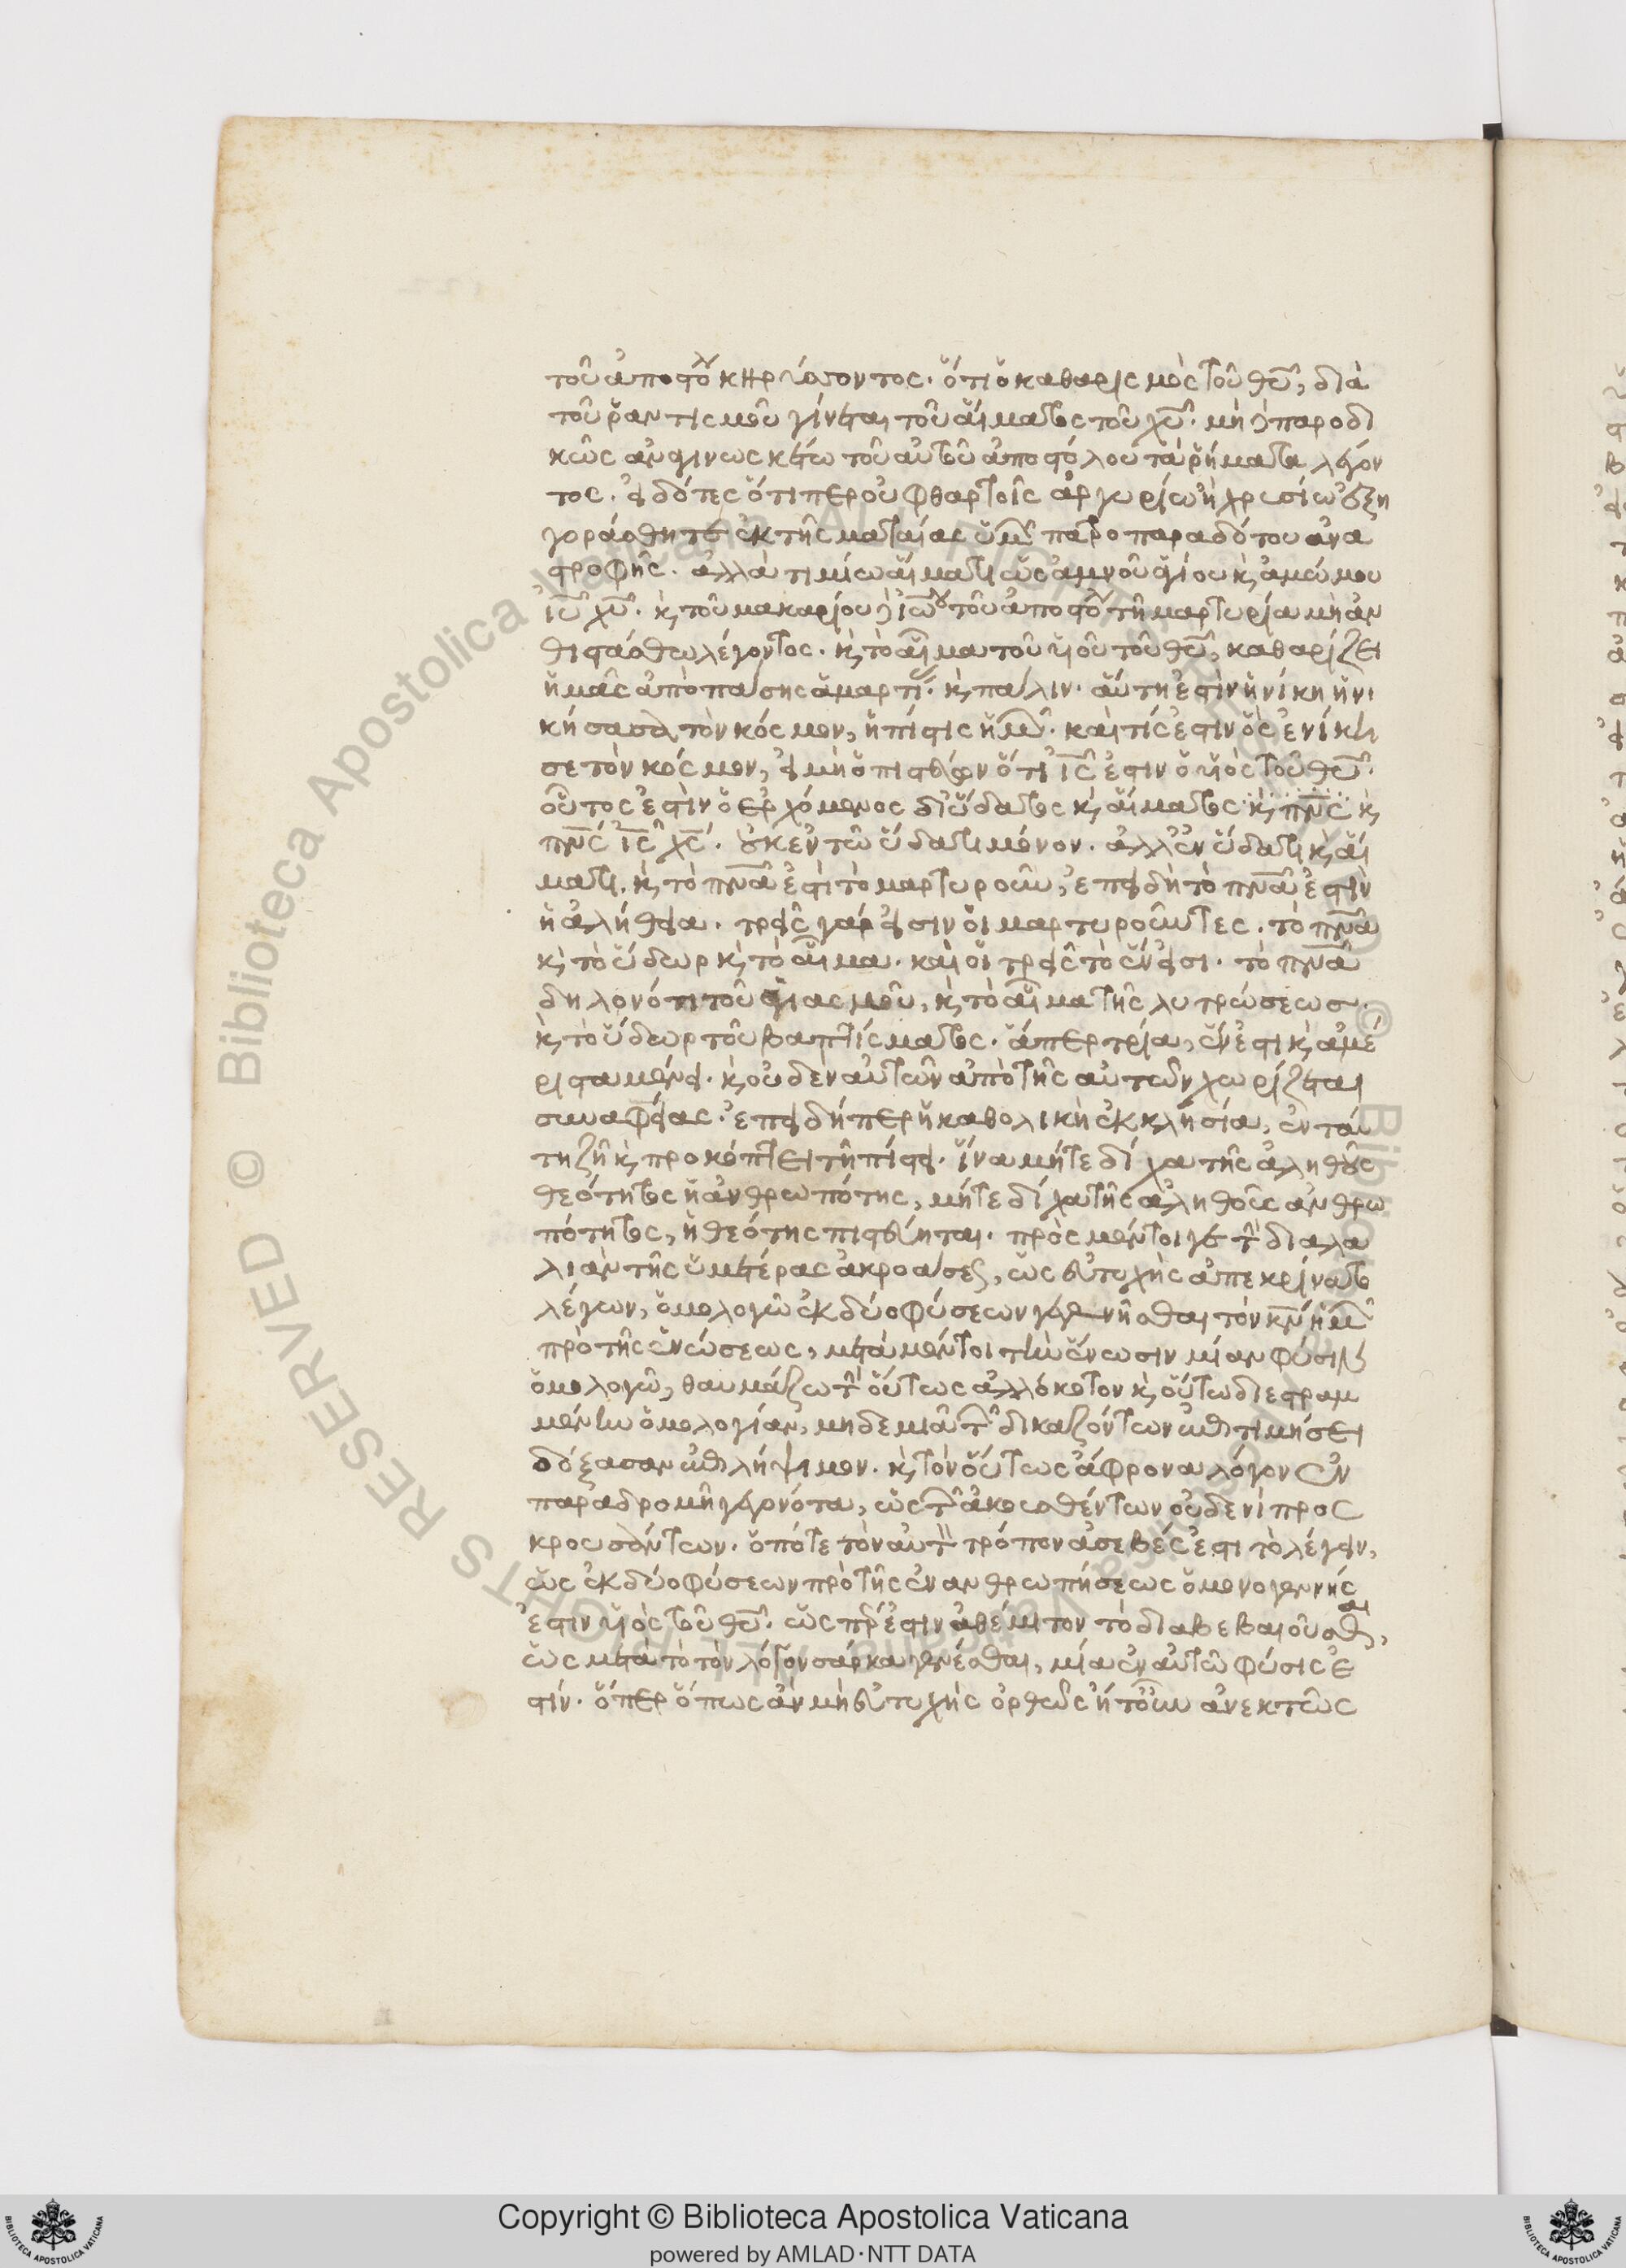 τοῦ ἀποστόλ κηρύσσοντος· ὅτι ὁ καθαρισμὸς τοῦ θυ, διὰ
τοῦ ῥαντισμοῦ γίνεται τοῦ αἵματος τοῦ χυ· μὴ παροδι
κῶς ἀναγινωσκέτω τοῦ αὐτοῦ ἀποστόλου τὰ ῥήματα λέγον
τος· εἰδότες ὅτιπερ οὐ φθαρτοῖς ἀργυρίω ἢ χρυσίω ἐξη
γοράσθητε ἐκ τῆς ματαίας ὑμ πατροπαραδότου ἀνα
στροφῆς· ἀλλὰ τιμίω αἵματι ὡς ἀμνοῦ ἁγίου κ ἀμώμου
ιυ χυ· κ τοῦ μακαρίου ἰω τοῦ ἀποστό τῆ μαρτυρία μὴ ἀν
θιστάσθω λέγοντος· κ τὸ αἷμα τοῦ υἱοῦ τοῦ θυ, καθαρίζει
ἡμᾶς ἀπὸ πάσης ἁμαρτί· κ πάλιν· αὕτη ἐστὶν ἡ νίκη ἡ νι
κήσασα τὸν κόσμον, ἡ πίστις ἡμ· καὶ τίς ἐστιν ὃς ἐνίκη
σε τὸν κόσμον, εἰ μὴ ὁ πιστεύων ὅτι ις ἐστιν ὁ υἱὸς τοῦ θυ·
οὗτος ἐστὶν ὁ ἐρχόμενος δι' ὕδατος κ αἵματος κ πνς κ
πνς ις χς· οὐκ ἐν τῶ ὕδατι μόνον· ἀλλ' ἐν ὕδατι κ αἵ
ματι. κ τὸ πνα ἐστὶ τὸ μαρτυροῦν, ἐπειδὴ τὸ πνα ἐστὶν
ἡ ἀλήθεια· τρεῖς γάρ εἰσιν οἱ μαρτυροῦντες· τὸ πνα
κ τὸ ὕδωρ κ τὸ αἷμα· καὶ οἱ τρεῖς τὸ ἕν εἰσι· τὸ πνα
δηλονότι τοῦ ἁγιασμοῦ, κ τὸ αἷμα τῆς λυτρώσεως·
κ τὸ ὕδωρ τοῦ βαπτίσματος· ἅπερ τρία, ἕν ἐστι κ ἀμέ
ριστα μένει· κ οὐδὲν αὐτῶν ἀπὸ τῆς αὐτῶν χωρίζεται
συναφείας· ἐπειδήπερ ἡ καθολικὴ ἐκκλησία, ἐν ταύ
τη ζῆ κ προκόπτει τῆ πίστει· ἵνα μήτε δίχα τῆς ἀληθοῦς
θεότητος ἡ ἀνθρωπότης, μήτε δίχα τῆς ἀληθοῦς ἀνθρω
πότητος, ἡ θεότης πιστεύηται· πρὸς μέντοι γε τ διαλα
λιὰν τῆς ὑμετέρας ἀκροάσεως, ὡς εὐτυχὴς ἀπεκρίνατο
λέγων, ὁμολογῶ ἐκ δύο φύσεων γεγενῆσθαι τὸν κν ἡμ
πρὸ τῆς ἑνώσεως, μετὰ μέντοι τὴν ἕνωσιν μίαν φύσιν
ὁμολογῶ, θαυμάζω τ οὕτως ἀλλόκοτον κ οὕτω διεστραμ
μένην ὁμολογίαν, μηδεμιᾶ τ δικαζόντων ἐπιτιμήσει
δόξασαν ἐπιλήψιμον· κ τὸν οὕτως ἄφρονα λόγον ἐν
παραδρομῆ γεγονότα, ὡς τ ἀκουσθέντων οὐδενὶ προσ
κρουσάντων· ὁπότε τὸν αὐτ τρόπον ἀσεβές ἐστι τὸ λέγειν,
ὡς ἐκ δύο φύσεων πρὸ τῆς ἐνανθρωπήσεως ὁ μονογενής
ἐστιν υἱὸς τοῦ θυ· ὥσπερ ἐστιν ἀθέμιτον τὸ διαβεβαιοῦσθαι,
ὡς μετὰ τὸ τὸν λόγον σάρκα γενέσθαι, μία ἐν αὐτῶ φύσις ἐ
στίν· ὅπερ ὅπως ἂν μὴ εὐτυχὴς ὀρθῶς ἢ τοιουν ἀνεκτῶς